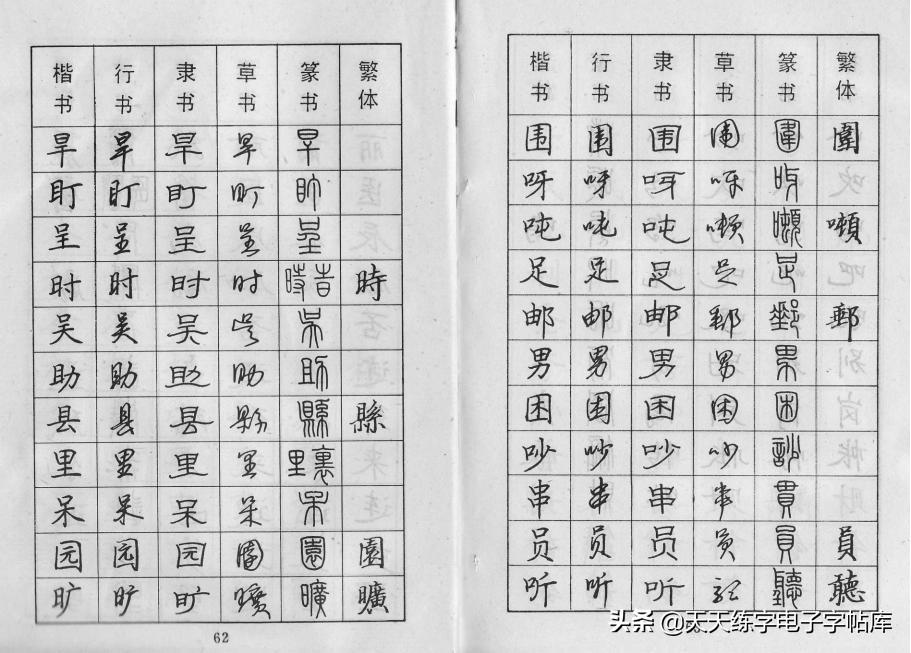 楷书 行书 隶书 草书 篆书 繁体
旱 旱 旱 旱 旱
盯 盯 盯 盯 盯
呈 呈 呈 呈 呈
时 时 时 时 時旹 時
吴 吴 吴 吴 吴
助 助 助 助 助
县 县 县 縣 縣 縣
里 里 里 里 里裏
呆 呆 呆 呆 呆
园 园 园 園 園 園
旷 旷 旷 曠 曠 曠
62
楷书 行书 隶书 草书 篆书 繁体
围 围 围 圍 圍 圍
呀 呀 呀 呀 呀
吨 吨 吨 噸 噸 噸
足 足 足 足 足
邮 邮 邮 郵 郵 郵
男 男 男 男 男
困 困 困 困 困
吵 吵 吵 吵 訬
串 串 串 串 貫
员 员 员 員 員 員
听 听 听 聽 聽 聽
头条 @天天练字电子字帖库